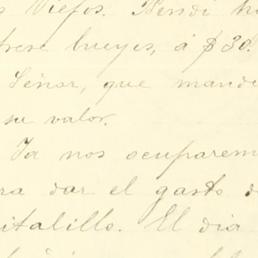 Viejos. Vendí
trece bueyes, á $30.
Señor, que mande
su valor.
Ya nos ocuparem
ra dar el gasto d
italillo. El dia